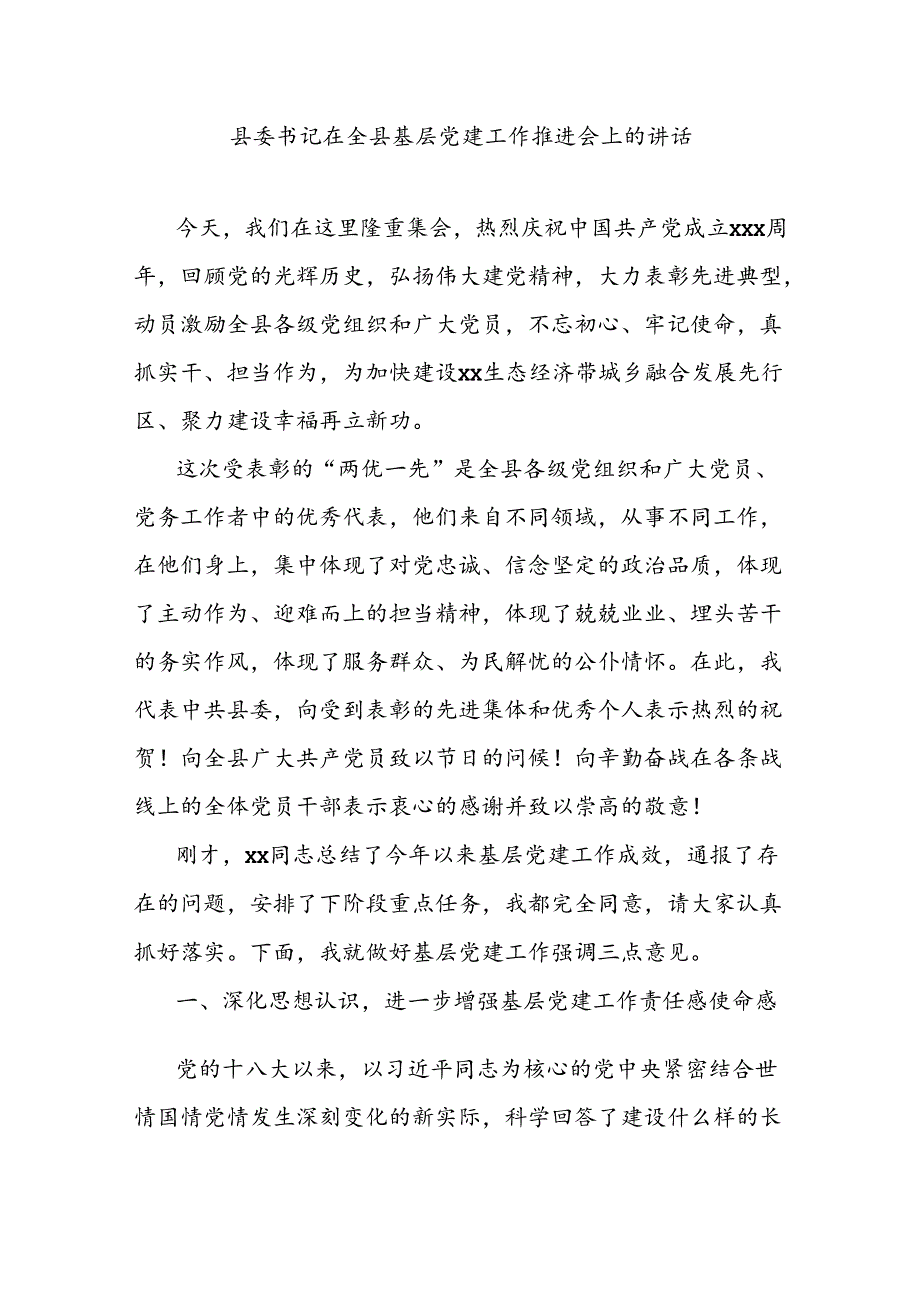 县委书记在全县基层党建工作推进会上的讲话
今天，我们在这里隆重集会，热烈庆祝中国共产党成立xxx周
年，回顾党的光辉历史，弘扬伟大建党精神，大力表彰先进典型，
动员激励全县各级党组织和广大党员，不忘初心、牢记使命，真
抓实干、担当作为，为加快建设xx生态经济带城乡融合发展先行
区、聚力建设幸福再立新功。
这次受表彰的“两优一先”是全县各级党组织和广大党员、
党务工作者中的优秀代表，他们来自不同领域，从事不同工作，
在他们身上，集中体现了对党忠诚、信念坚定的政治品质，体现
了主动作为、迎难而上的担当精神，体现了兢兢业业、埋头苦干
的务实作风，体现了服务群众、为民解忧的公仆情怀。在此，我
代表中共县委，向受到表彰的先进集体和优秀个人表示热烈的祝
贺！向全县广大共产党员致以节日的问候！向辛勤奋战在各条战
线上的全体党员干部表示衷心的感谢并致以崇高的敬意！
刚才，xx同志总结了今年以来基层党建工作成效，通报了存
在的问题，安排了下阶段重点任务，我都完全同意，请大家认真
抓好落实。下面，我就做好基层党建工作强调三点意见。
一、深化思想认识，进一步增强基层党建工作责任感使命感
党的十八大以来，以习近平同志为核心的党中央紧密结合世
情国情党情发生深刻变化的新实际，科学回答了建设什么样的长